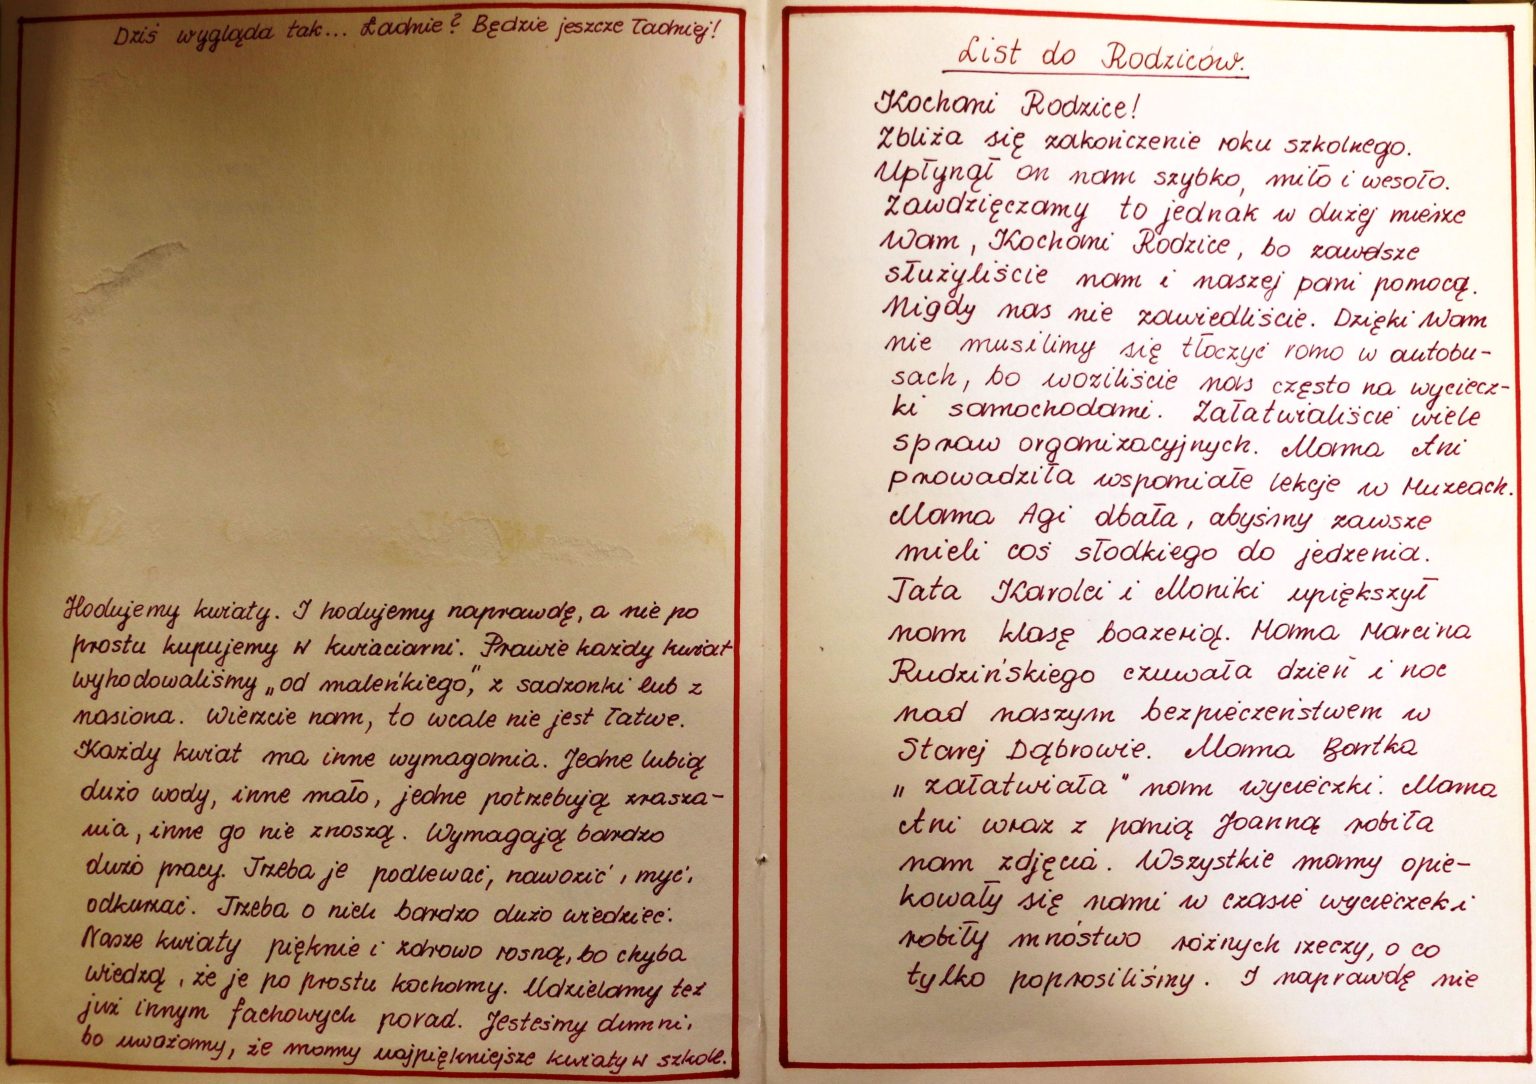 Dziś wygląda tak... Ładnie? Będzie jeszcze ładniej!
Hodujemy kwiaty. I hodujemy naprawdę, a nie po
prostu kupujemy w kwiaciarni. Prawie każdy kwiat
wyhodowaliśmy „od maleńkiego," z sadzonki lub z
nasiona. Wierzcie nam, to wcale nie jest łatwe.
Każdy kwiat ma inne wymagania. Jedne lubią
dużo wody, inne mało, jedne potrzebują zrasza-
nia, inne go nie znoszą. Wymagają bardzo
dużo pracy. Trzeba je podlewać, nawozić, myć,
odkurzać. Trzeba o nich bardzo dużo wiedzieć.
Nasze kwiaty pięknie i zdrowo rosną, bo chyba
wiedzą, że je po prostu kochamy. Udzielamy też
już innym fachowych porad. Jesteśmy dumni,
bo uważamy, że mamy najpiękniejsze kwiaty w szkole.
List do Rodziców.
Kochani Rodzice!
Zbliża się zakończenie roku szkolnego.
Upłynął on nam szybko, miło i wesoło.
Zawdzięczamy to jednak w dużej mierze
Wam, Kochani Rodzice, bo zawsze
służyliście nam i naszej pani pomocą.
Nigdy nas nie zawiedliście. Dzięki Wam
nie musilimy się tłoczyć rano w autobu-
sach, bo woziliście nas często na wyciecz-
ki samochodami. Załatwialiście wiele
spraw organizacyjnych. Mama Ani
prowadziła wspaniałe lekcje w Muzeach.
Mama Agi dbała, abyśmy zawsze
mieli coś słodkiego do jedzenia.
Tata Karolci i Moniki upiększył
nam klasę boazerią. Mama Marcina
Rudzińskiego czuwała dzień i noc
nad naszym bezpieczeństwem w
Starej Dąbrowie. Mama Bartka
„załatwiała" nam wycieczki. Mama
Ani wraz z panią Joanną robiła
nam zdjęcia. Wszystkie mamy opie-
kowały się nami w czasie wycieczek i
robiły mnóstwo różnych rzeczy, o co
tylko poprosiliśmy. I naprawdę nie